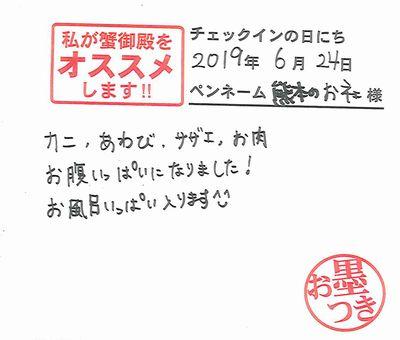 私が蟹御殿を
オススメ
します!!
チェックインの日にち
2019年 6月 24日
ペンネーム 熊本のお 様
カニ, あわび, サザエ, お肉
お腹いっぱいになりました!
お風呂いっぱい入ります^^
お墨つき